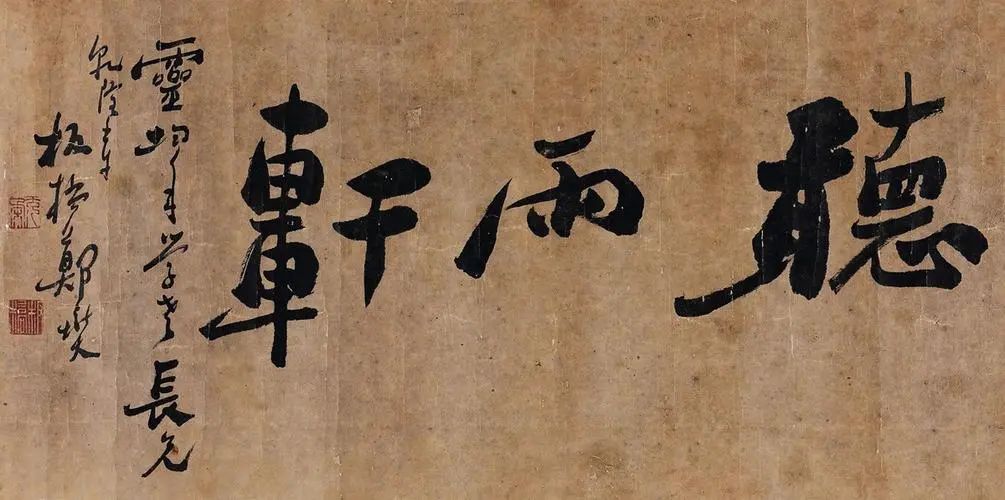 聽雨軒
靈均年学老長兄
乾隆
板橋鄭燮